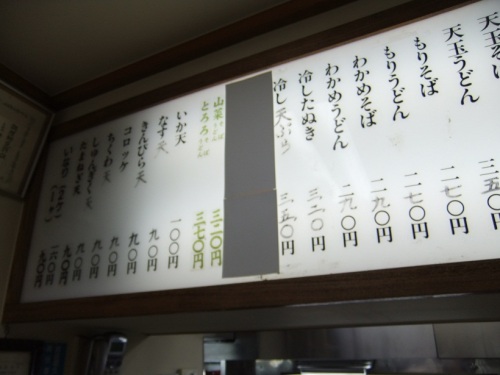 天玉うどん 三五〇円
もりそば 二七〇円
もりうどん 二七〇円
わかめそば 二九〇円
わかめうどん 二九〇円
冷したぬき 三二〇円
冷し天ぷら 三五〇円
山菜そばうどん 三二〇円
とろろそばうどん 三七〇円
いか天 一〇〇円
なす天 九〇円
きんぴら天 九〇円
コロッケ 九〇円
ちくわ天 九〇円
しゅんぎく天 九〇円
たまねぎ天 九〇円